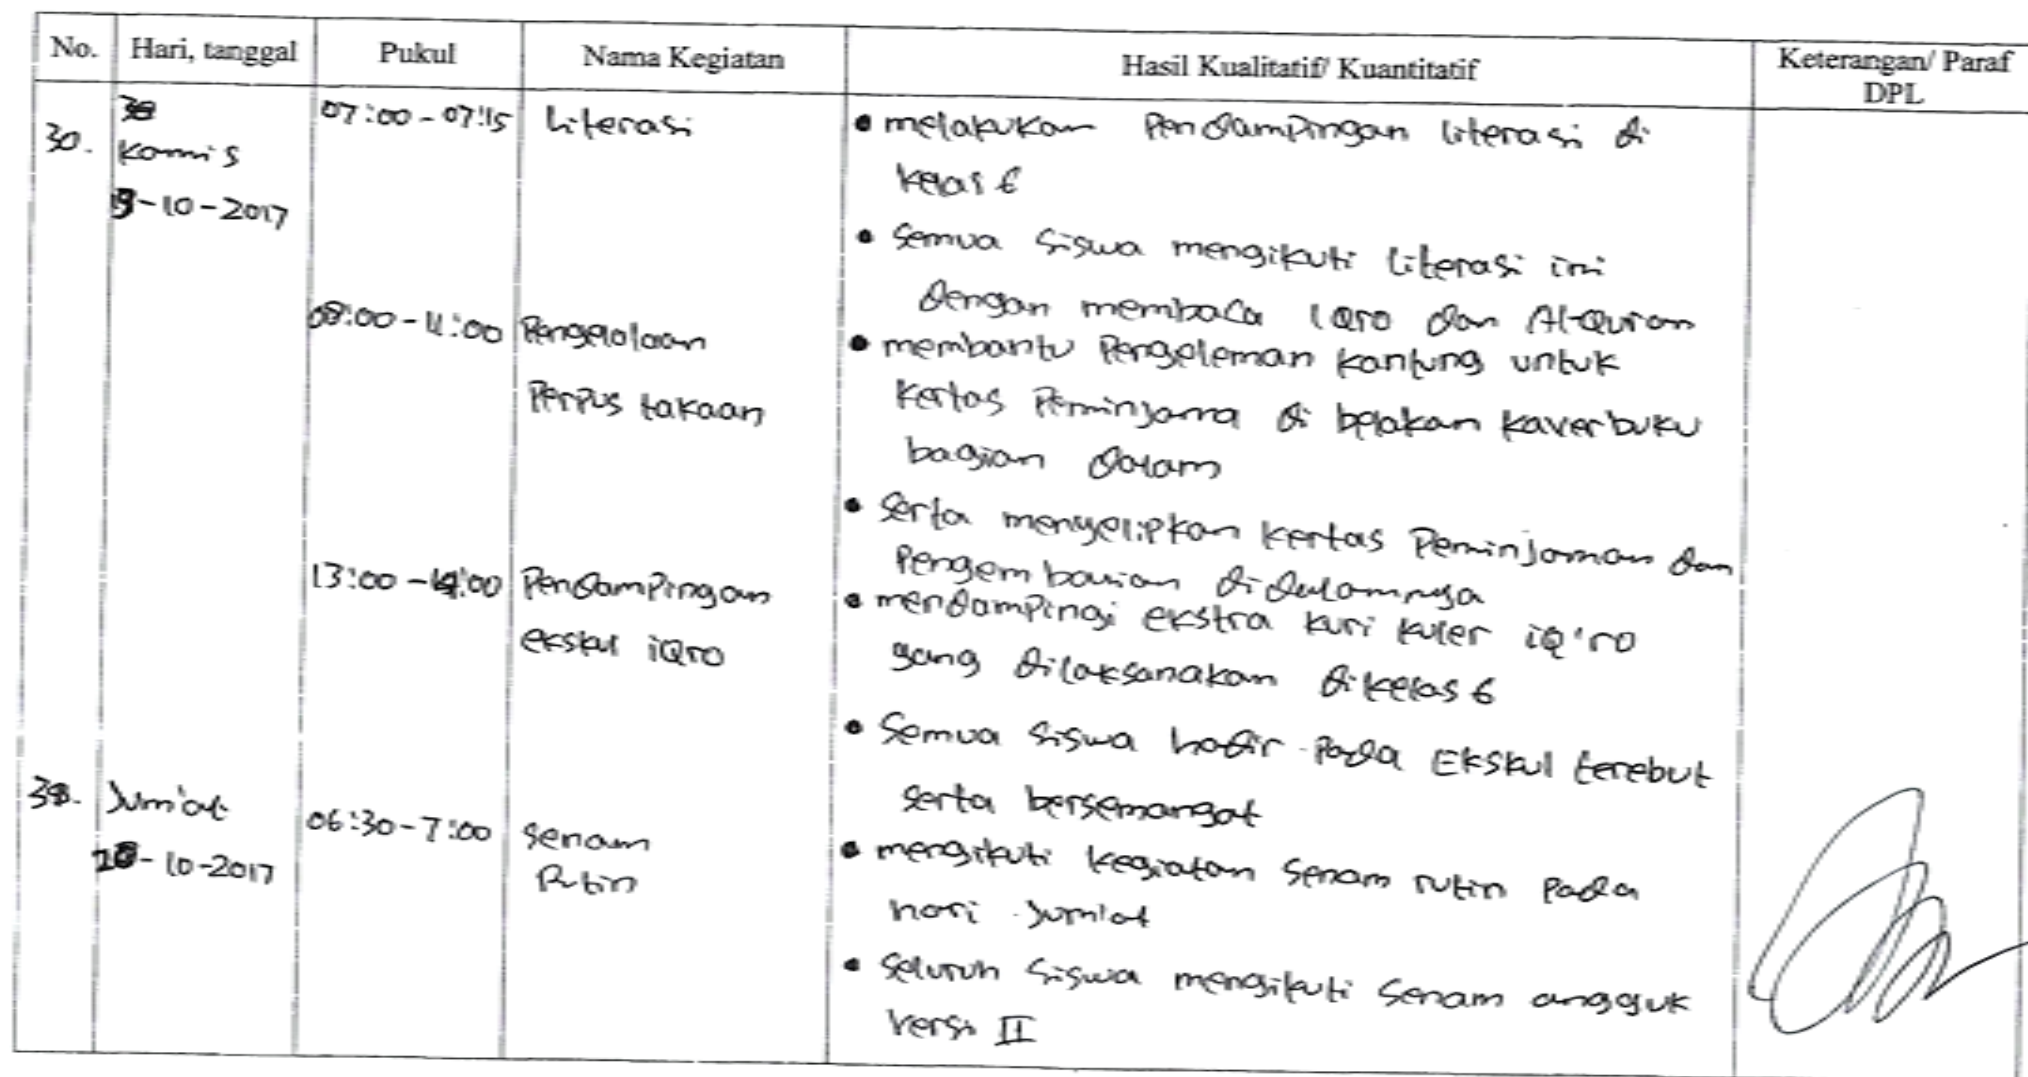 No. Hari, tanggal Pukul Nama Kegiatan Hasil Kualitatif/ Kuantitatif Keterangan/ Paraf DPL
30. Kamis 07:00 - 07:15 Literasi • melakukan Pendampingan literasi di
-10-2017 kelas 6
• Semua siswa mengikuti literasi ini
dengan membaca IQro dan Al-Quran
08:00 - 11:00 Pengelolaan • membantu Pengeleman kantung untuk
Perpus takaan kertas Peminjama di belakan kaver buku
bagian dalam
• Serta menyelipkan kertas Peminjaman dan
Pengembalian didalamnya
13:00 - 14:00 Pendampingan • mendampingi ekstra kuri kuler iQ'ro
ekskul iQro yang dilaksanakan dikelas 6
• Semua siswa hadir Pada Ekskul terebut
serta bersemangat
Jum'at 06:30 - 7:00 Senam • mengikuti kegiatan Senam rutin Pada
-10-2017 Rutin hari Jum'at
• Seluruh siswa mengikuti Senam angguk
versi II